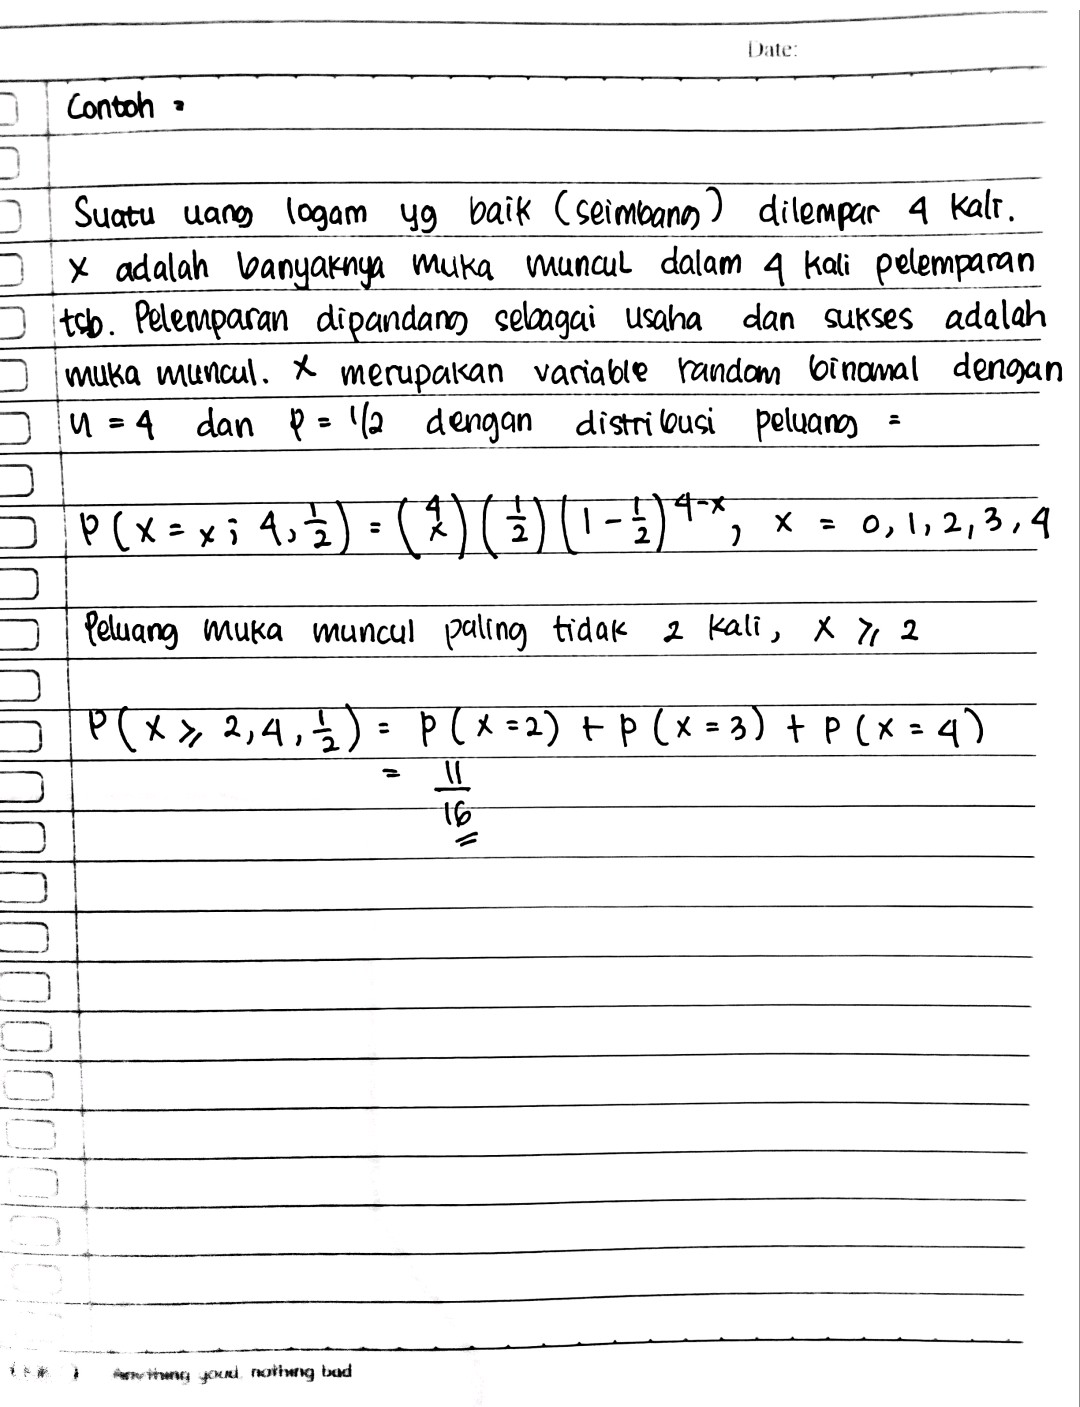 Date:
Contoh :
Suatu uang logam yg baik (seimbang) dilempar 4 kali.
X adalah banyaknya muka muncul dalam 4 kali pelemparan
tsb. Pelemparan dipandang sebagai usaha dan sukses adalah
muka muncul. X merupakan variable random binomal dengan
n = 4 dan p = 1/2 dengan distribusi peluang =
P(X = x; 4, 1/2) = (4 x) (1/2) (1 - 1/2)^4-x, x = 0, 1, 2, 3, 4
Peluang muka muncul paling tidak 2 kali, X ≥ 2
P(X ≥ 2, 4, 1/2) = P(X = 2) + P(X = 3) + P(X = 4)
= 11/16
Anything good, nothing bad